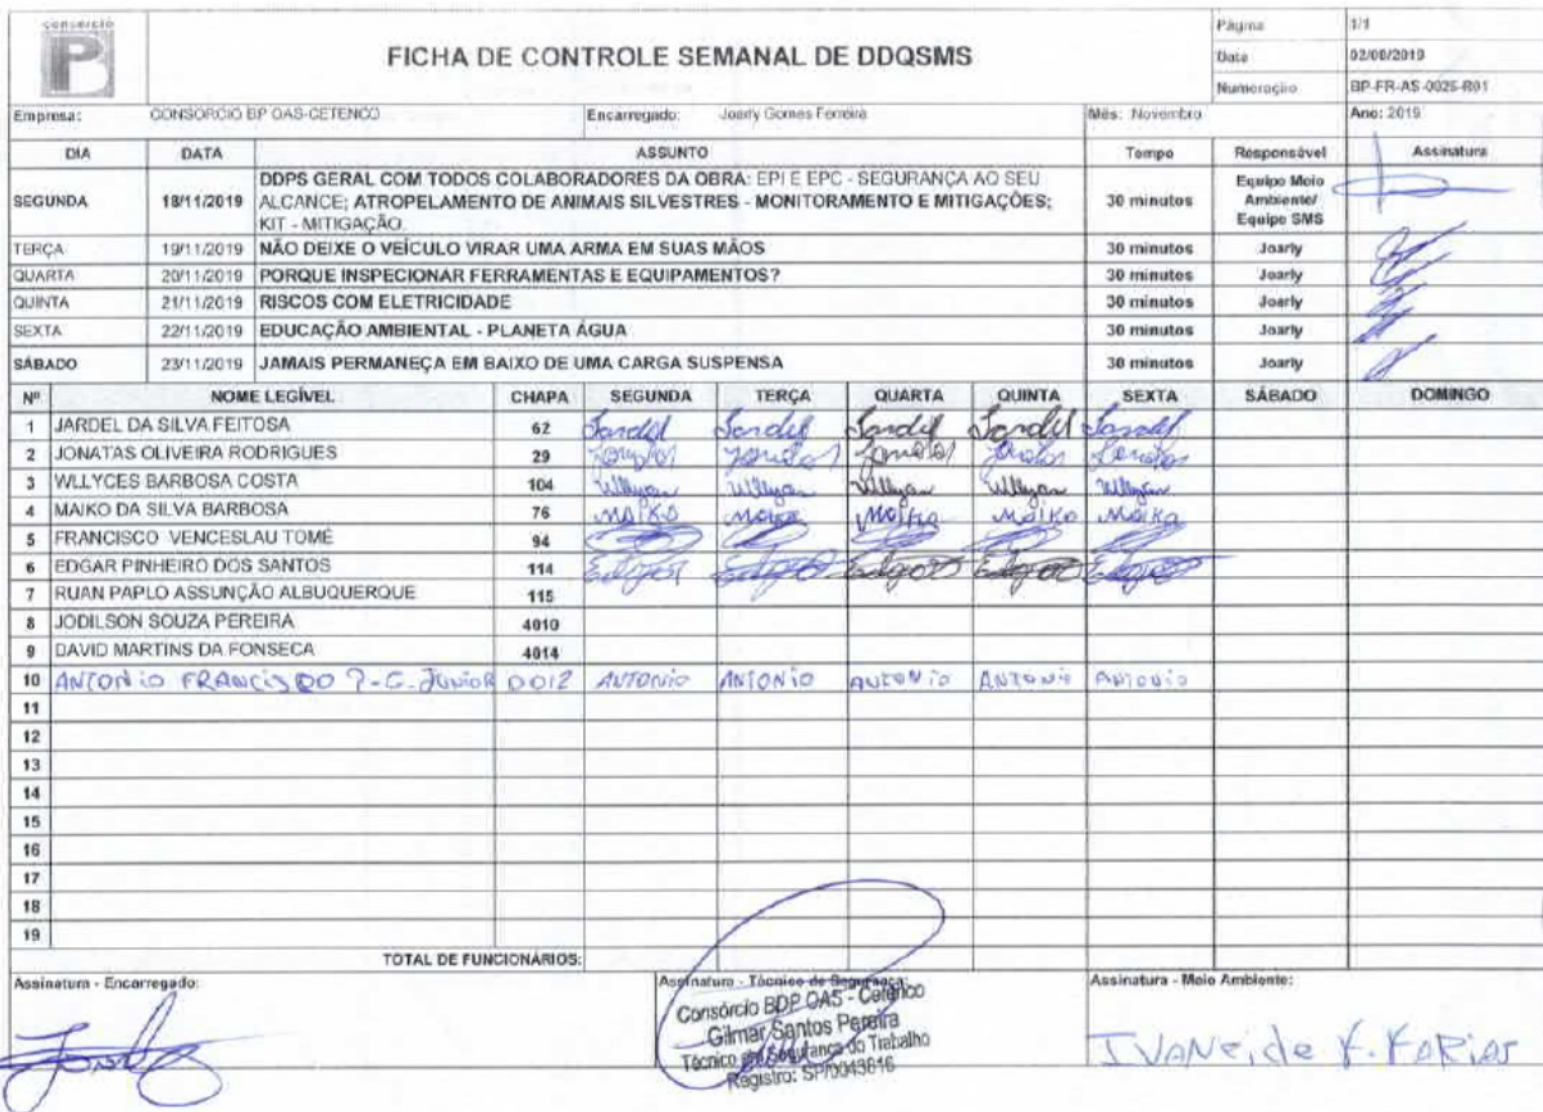 consórcio
PB
FICHA DE CONTROLE SEMANAL DE DDQSMS
Página 1/1
Data 02/08/2019
Numeração BP-FR-AS-0025-R01
Empresa: CONSORCIO BP OAS-CETENCO Encarregado: Joarly Gomes Ferreira Mês: Novembro Ano: 2019
DIA DATA ASSUNTO Tempo Responsável Assinatura
SEGUNDA 18/11/2019 DDPS GERAL COM TODOS COLABORADORES DA OBRA: EPI E EPC - SEGURANÇA AO SEU
ALCANCE; ATROPELAMENTO DE ANIMAIS SILVESTRES - MONITORAMENTO E MITIGAÇÕES;
KIT - MITIGAÇÃO.
30 minutos
Equipe Meio
Ambiente/
Equipe SMS
TERÇA 19/11/2019 NÃO DEIXE O VEÍCULO VIRAR UMA ARMA EM SUAS MÃOS 30 minutos Joarly
QUARTA 20/11/2019 PORQUE INSPECIONAR FERRAMENTAS E EQUIPAMENTOS? 30 minutos Joarly
QUINTA 21/11/2019 RISCOS COM ELETRICIDADE 30 minutos Joarly
SEXTA 22/11/2019 EDUCAÇÃO AMBIENTAL - PLANETA ÁGUA 30 minutos Joarly
SÁBADO 23/11/2019 JAMAIS PERMANEÇA EM BAIXO DE UMA CARGA SUSPENSA 30 minutos Joarly
Nº NOME LEGÍVEL CHAPA SEGUNDA TERÇA QUARTA QUINTA SEXTA SÁBADO DOMINGO
1 JARDEL DA SILVA FEITOSA 62 Jardel Jardel Jardel Jardel Jardel
2 JONATAS OLIVEIRA RODRIGUES 29 Jonatas Jonatas Jonatas Jonatas Jonatas
3 WLLYCES BARBOSA COSTA 104
4 MAIKO DA SILVA BARBOSA 76 MAIKO Maiko Maiko Maiko Maiko
5 FRANCISCO VENCESLAU TOMÉ 94
6 EDGAR PINHEIRO DOS SANTOS 114 Edgar Edgar Edgar Edgar Edgar
7 RUAN PAPLO ASSUNÇÃO ALBUQUERQUE 115
8 JODILSON SOUZA PEREIRA 4010
9 DAVID MARTINS DA FONSECA 4014
10 ANTONIO FRANCISCO P.G. JUNIOR 0012 ANTONIO ANTONIO ANTONIO ANTONIO ANTONIO
11
12
13
14
15
16
17
18
19
TOTAL DE FUNCIONÁRIOS:
Assinatura - Encarregado: Assinatura - Técnico de Segurança: Assinatura - Meio Ambiente:
Consórcio BDP OAS - Cetenco
Gilmar Santos Pereira
Técnico em Segurança do Trabalho
Registro: SP/0043616
IVANEide F. FARias